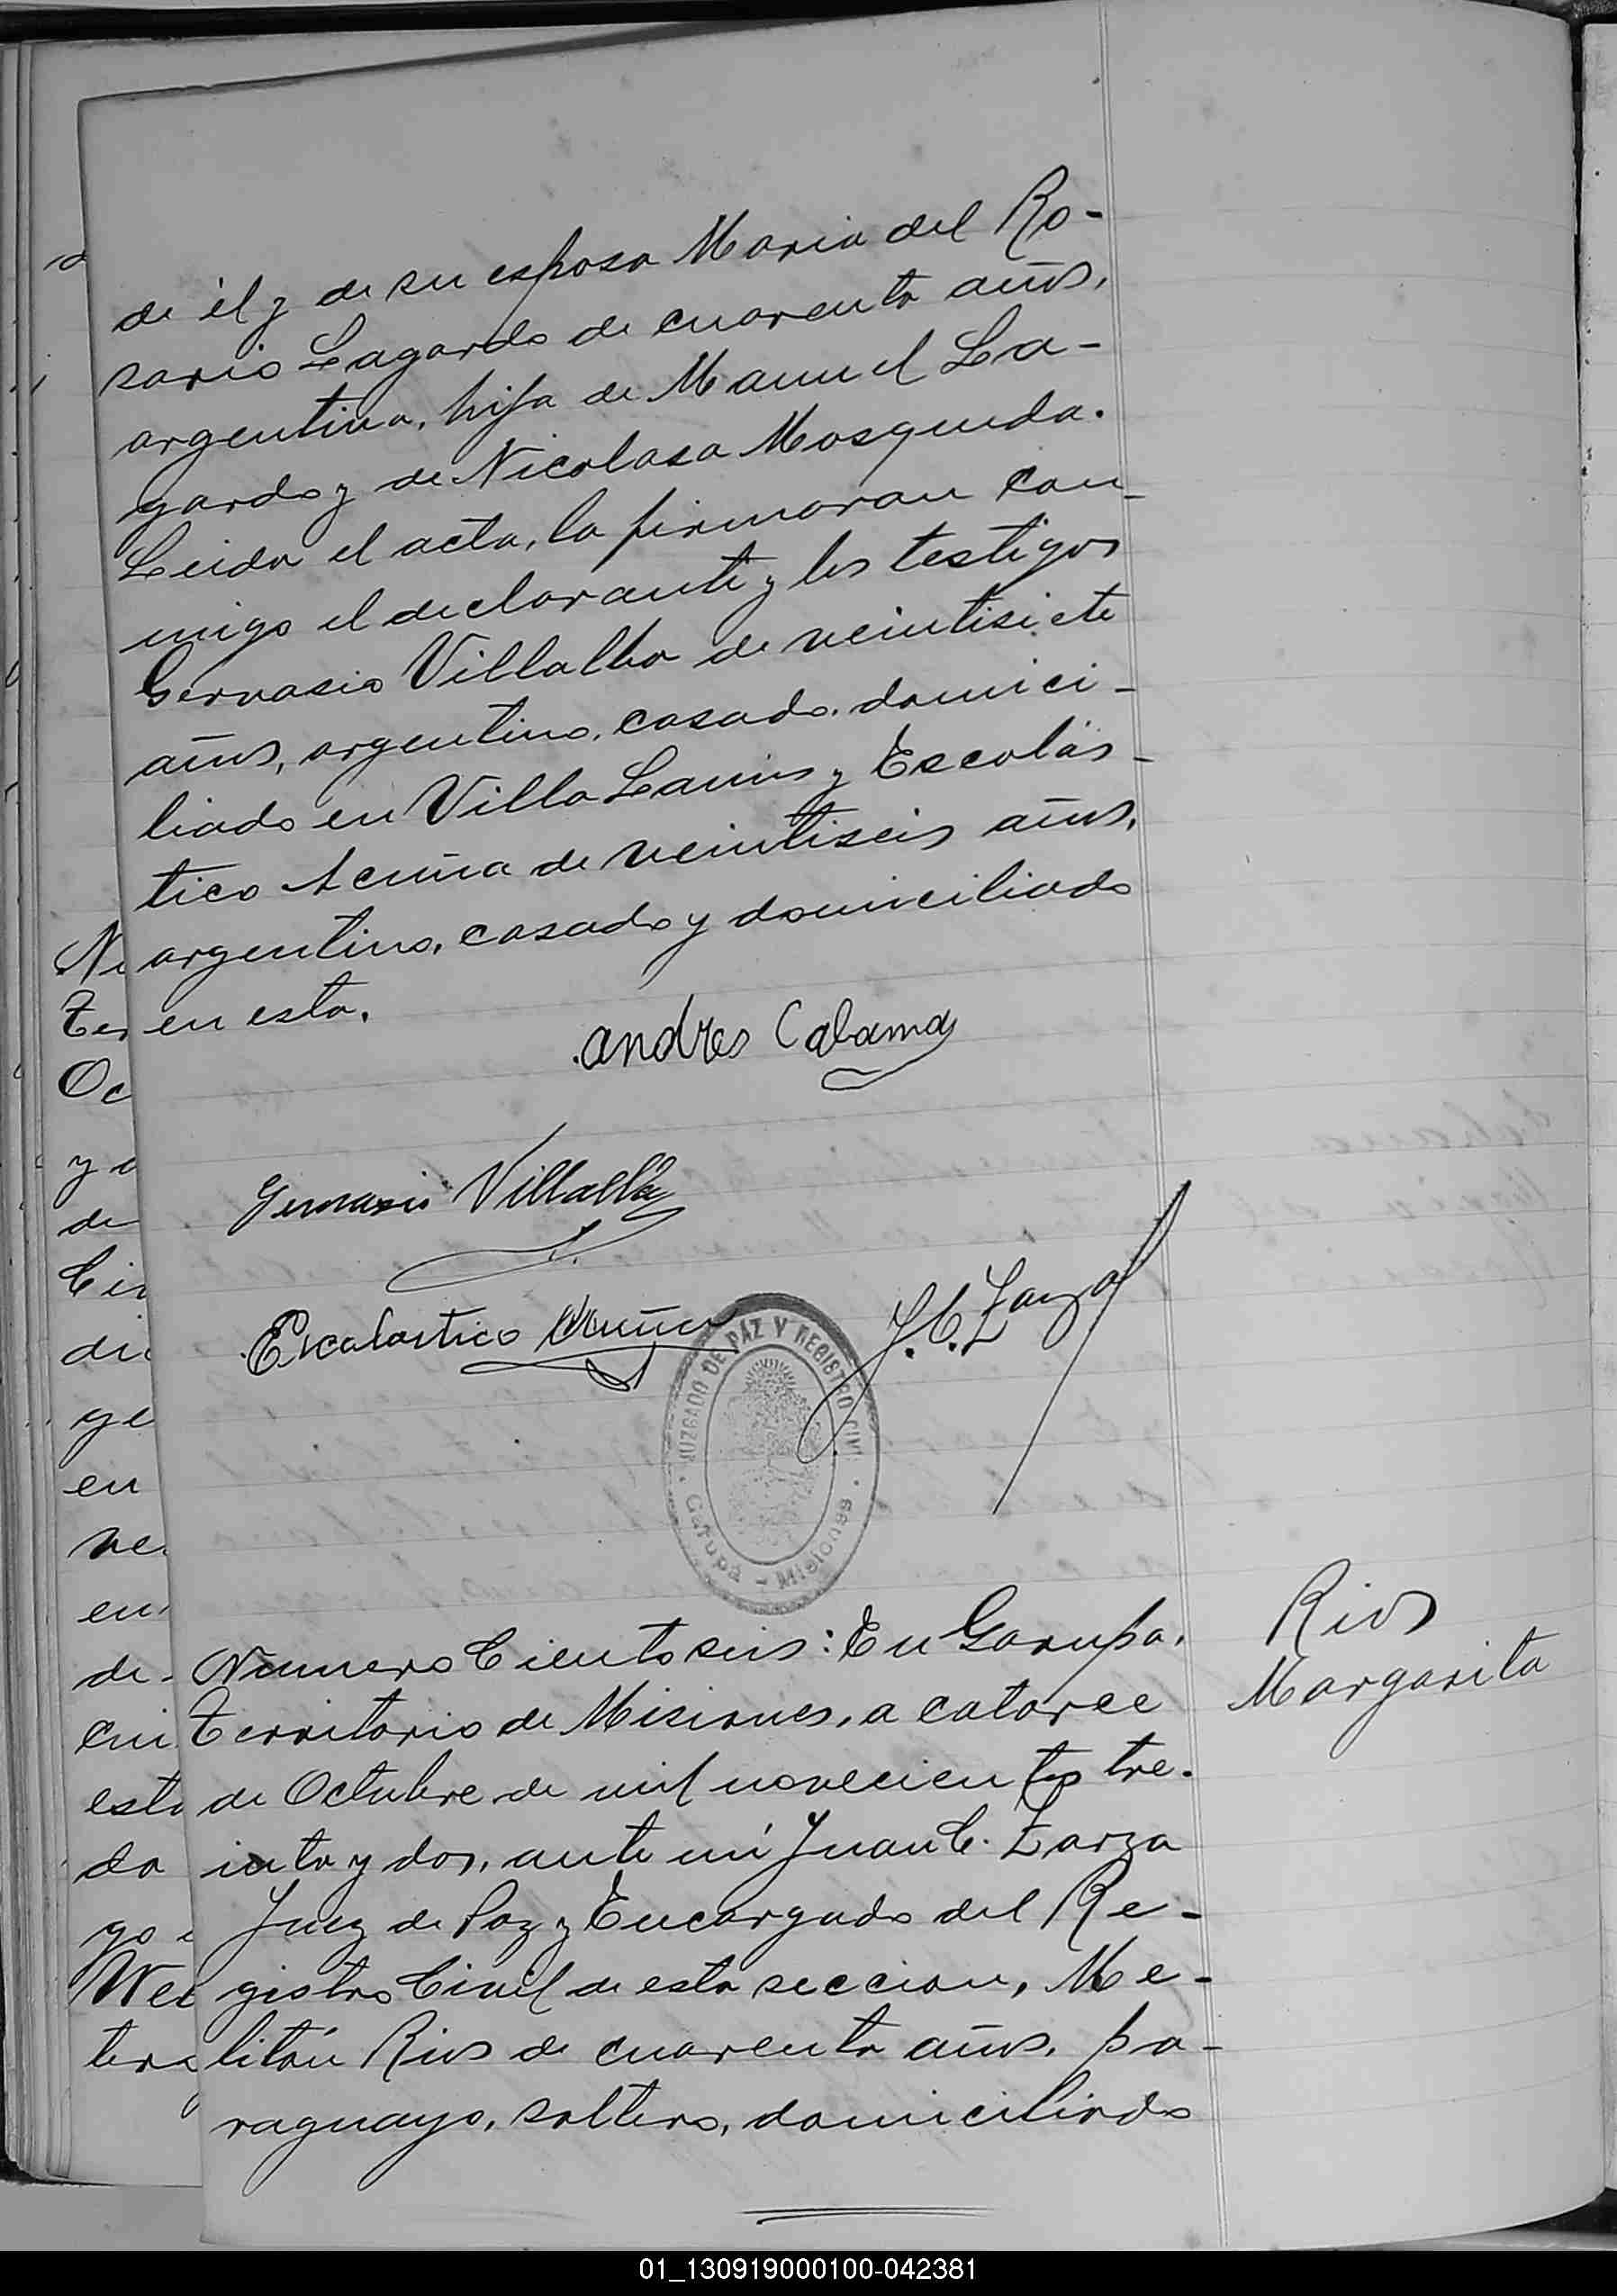 de él y de su esposa Maria del Ro-
sario Lagardo de cuarenta años,
argentina, hija de Manuel La-
gardo y de Nicolasa Mosqueda.
Leida el acta, la firmaran con-
migo el declarante y los testigos
Gervasio Villalba de veintisiete
años, argentino, casado, domici-
liado en Villa Lanus y Escolás-
tico Acuña de veintiseis años,
argentino, casado y domiciliado
en esta.
Andres Cabama
Gervasio Villalba
Escolastico Acuña
J. C. Zarza
JUZGADO DE PAZ Y REGISTRO CIVIL
Garupá - Misiones
Rios
Margarita
Número Ciento seis: En Garupa,
Territorio de Misiones, a catorce
de Octubre de mil novecientos tre-
inta y dos, ante mí Juan C. Zarza
Juez de Paz y Encargado del Re-
gistro Civil de esta seccion, Me-
litón Rios de cuarenta años, pa-
raguayo, soltero, domiciliado
Oc
de
Civ
ge
en
de
da
01_130919000100-042381